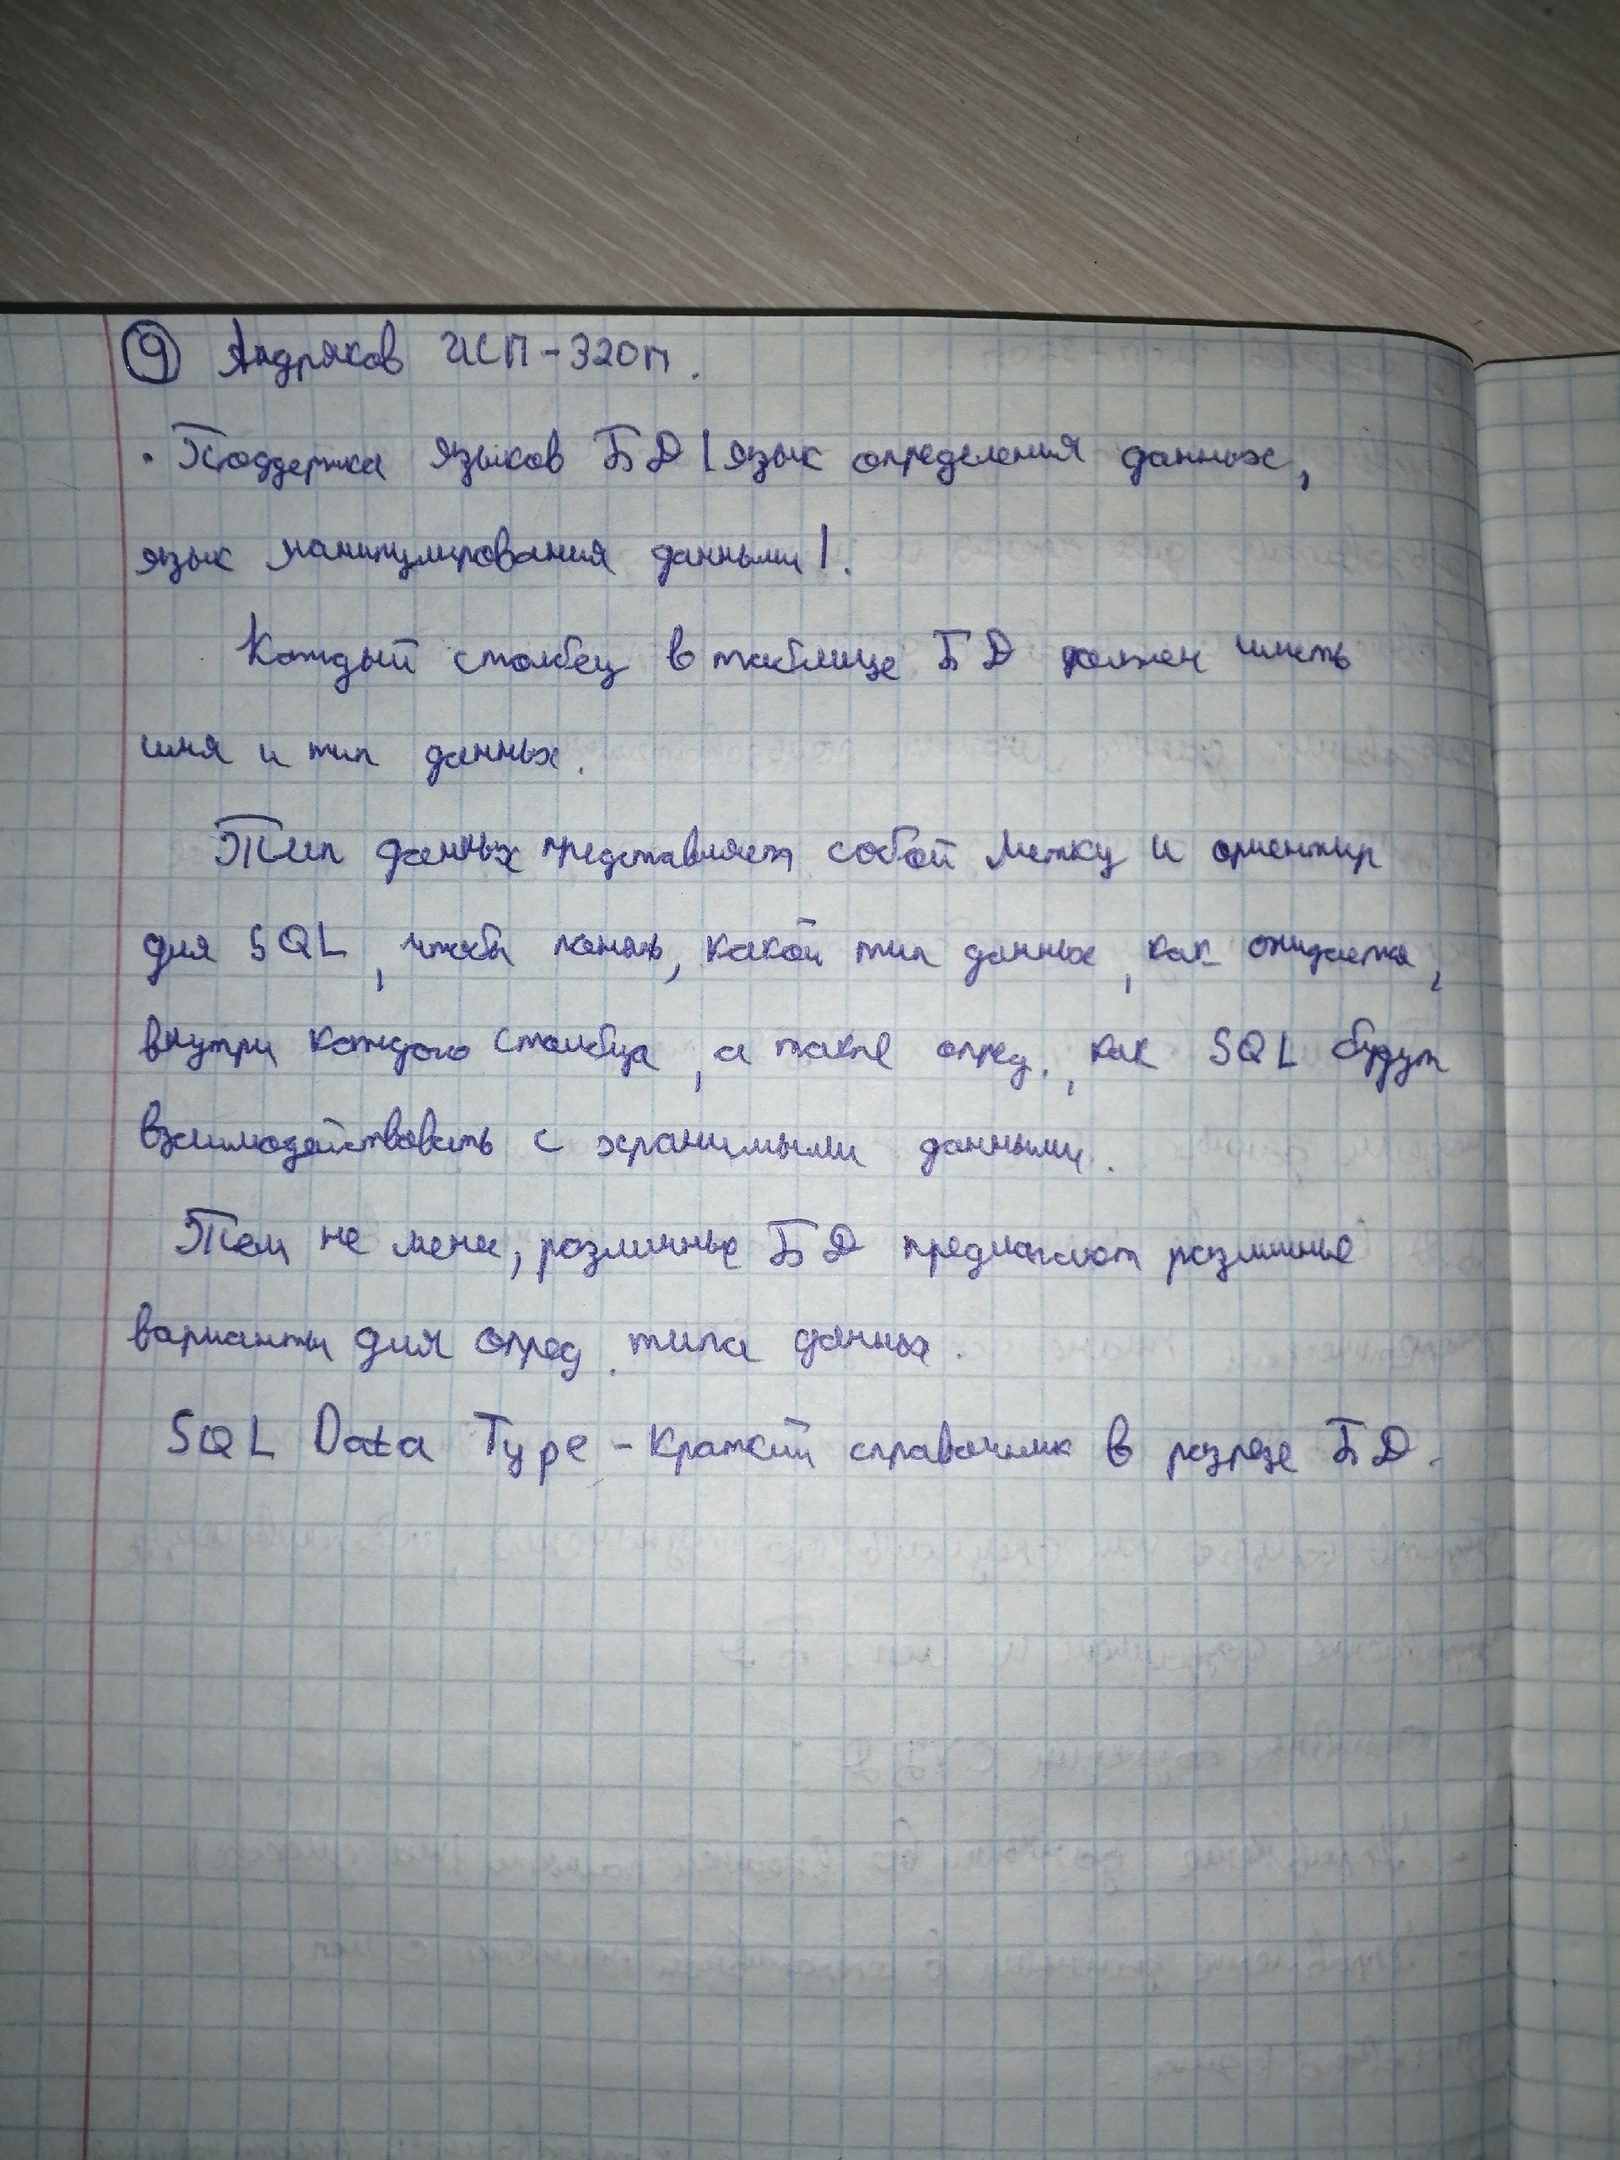 9 Андряков ИСП-320п.
· Поддержка языков БД (язык определения данных,
язык манипулирования данными).
Каждый столбец в таблице БД должен иметь
имя и тип данных.
Тип данных представляет собой метку и ориентир
для SQL, чтобы понять, какой тип данных, как ожидается,
внутри каждого столбца, а также опред., как SQL будут
взаимодействовать с хранимыми данными.
Тем не мене, различные БД предлагают различные
варианты для опред. типа данных.
SQL Data Type - Краткий справочник в разрезе БД.